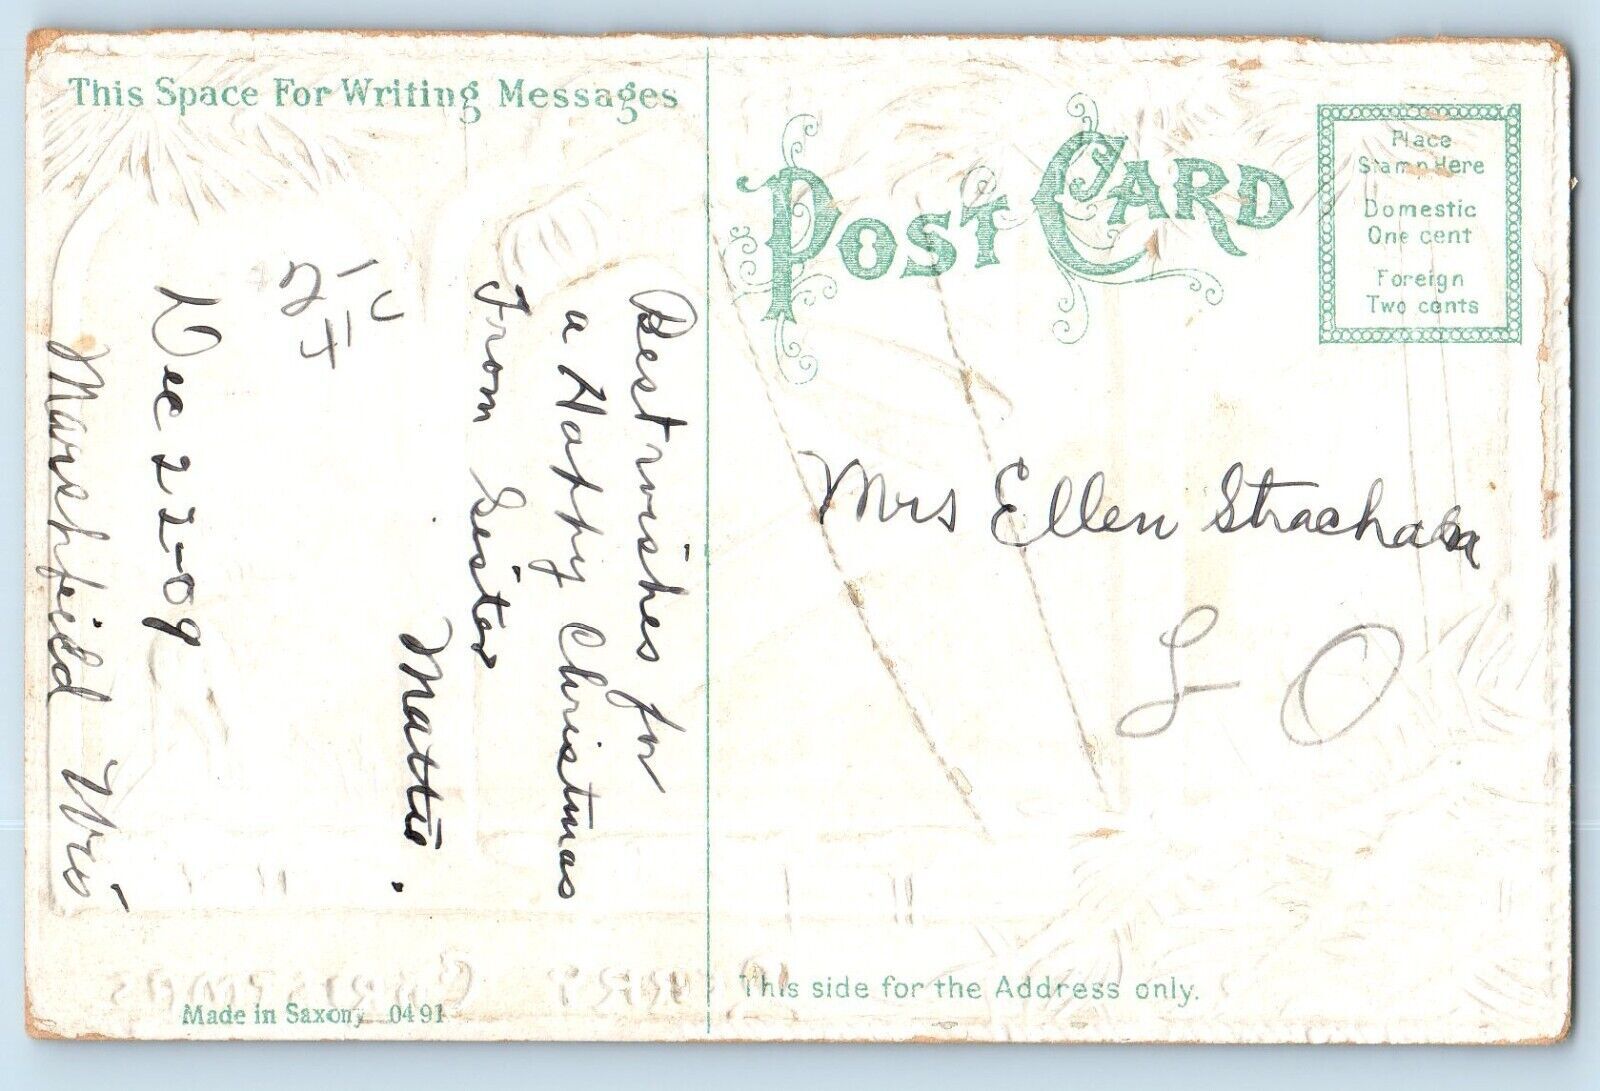 This Space For Writing Messages
POST CARD
Place
Stamp Here
Domestic
One cent
Foreign
Two cents
Best wishes for
a Happy Christmas
From Sister
Mattie.
Dec 22-09
Marshfield Wis
Mrs Ellen Strachan
L O
This side for the Address only.
Made in Saxony 0491